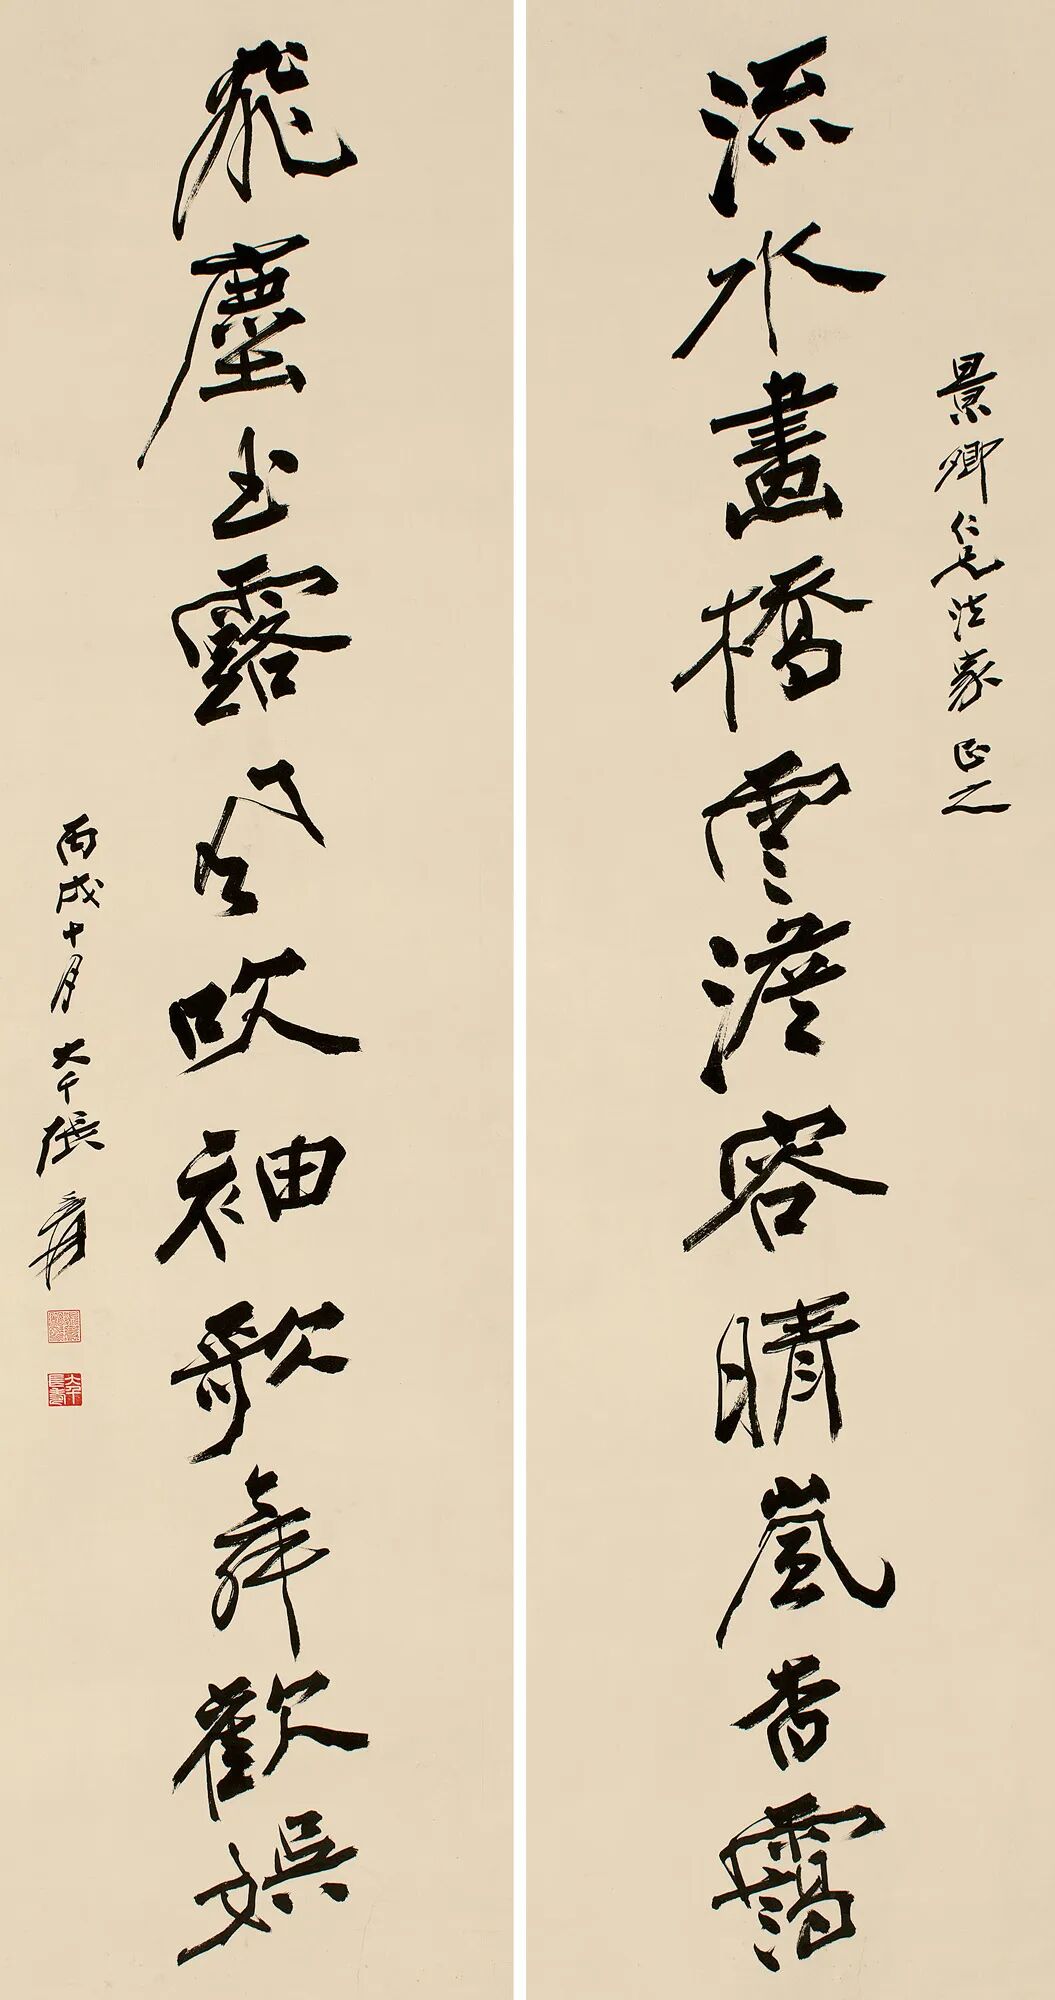 景卿仁兄法家正之
流水畫橋雲澹容晴嵐香靄
飛塵玉露風吹袖歌舞歡娛
丙戌十月大千張爰